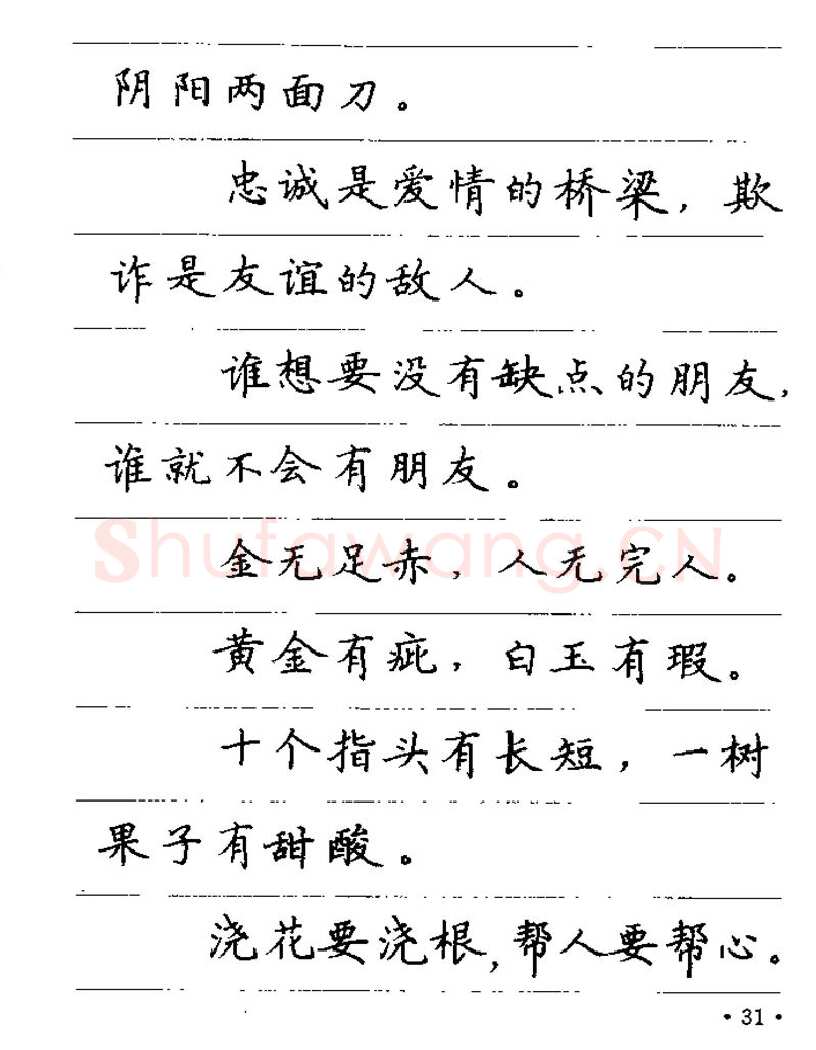 阴阳两面刀。
忠诚是爱情的桥梁，欺
诈是友谊的敌人。
谁想要没有缺点的朋友，
谁就不会有朋友。
Shufawang.CN
金无足赤，人无完人。
黄金有疵，白玉有瑕。
十个指头有长短，一树
果子有甜酸。
浇花要浇根，帮人要帮心。
·31·